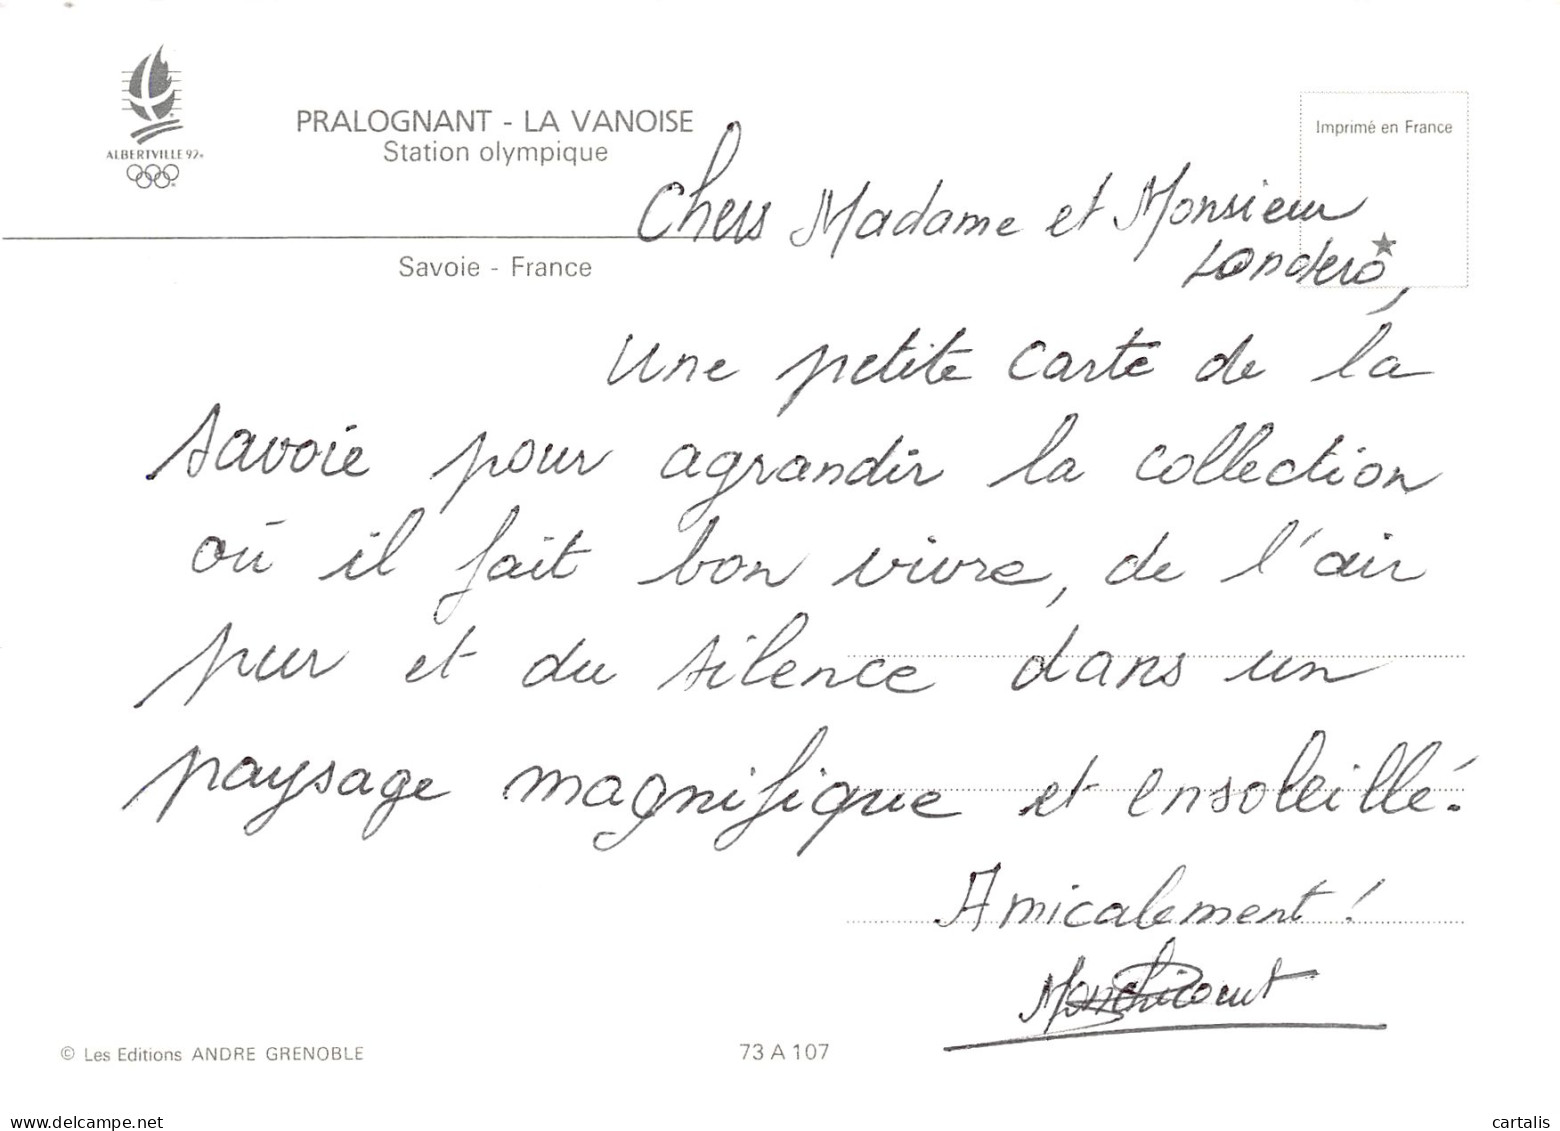 ALBERTVILLE 92
PRALOGNANT - LA VANOISE
Station olympique
Imprimé en France
Savoie - France
Chers Madame et Monsieur
Londero,
Une petite carte de la
Savoie pour agrandir la collection
où il fait bon vivre, de l'air
pur et du silence dans un
paysage magnifique et ensoleillé.
Amicalement !
© Les Editions ANDRE GRENOBLE
73 A 107
www.delcampe.net
cartalis